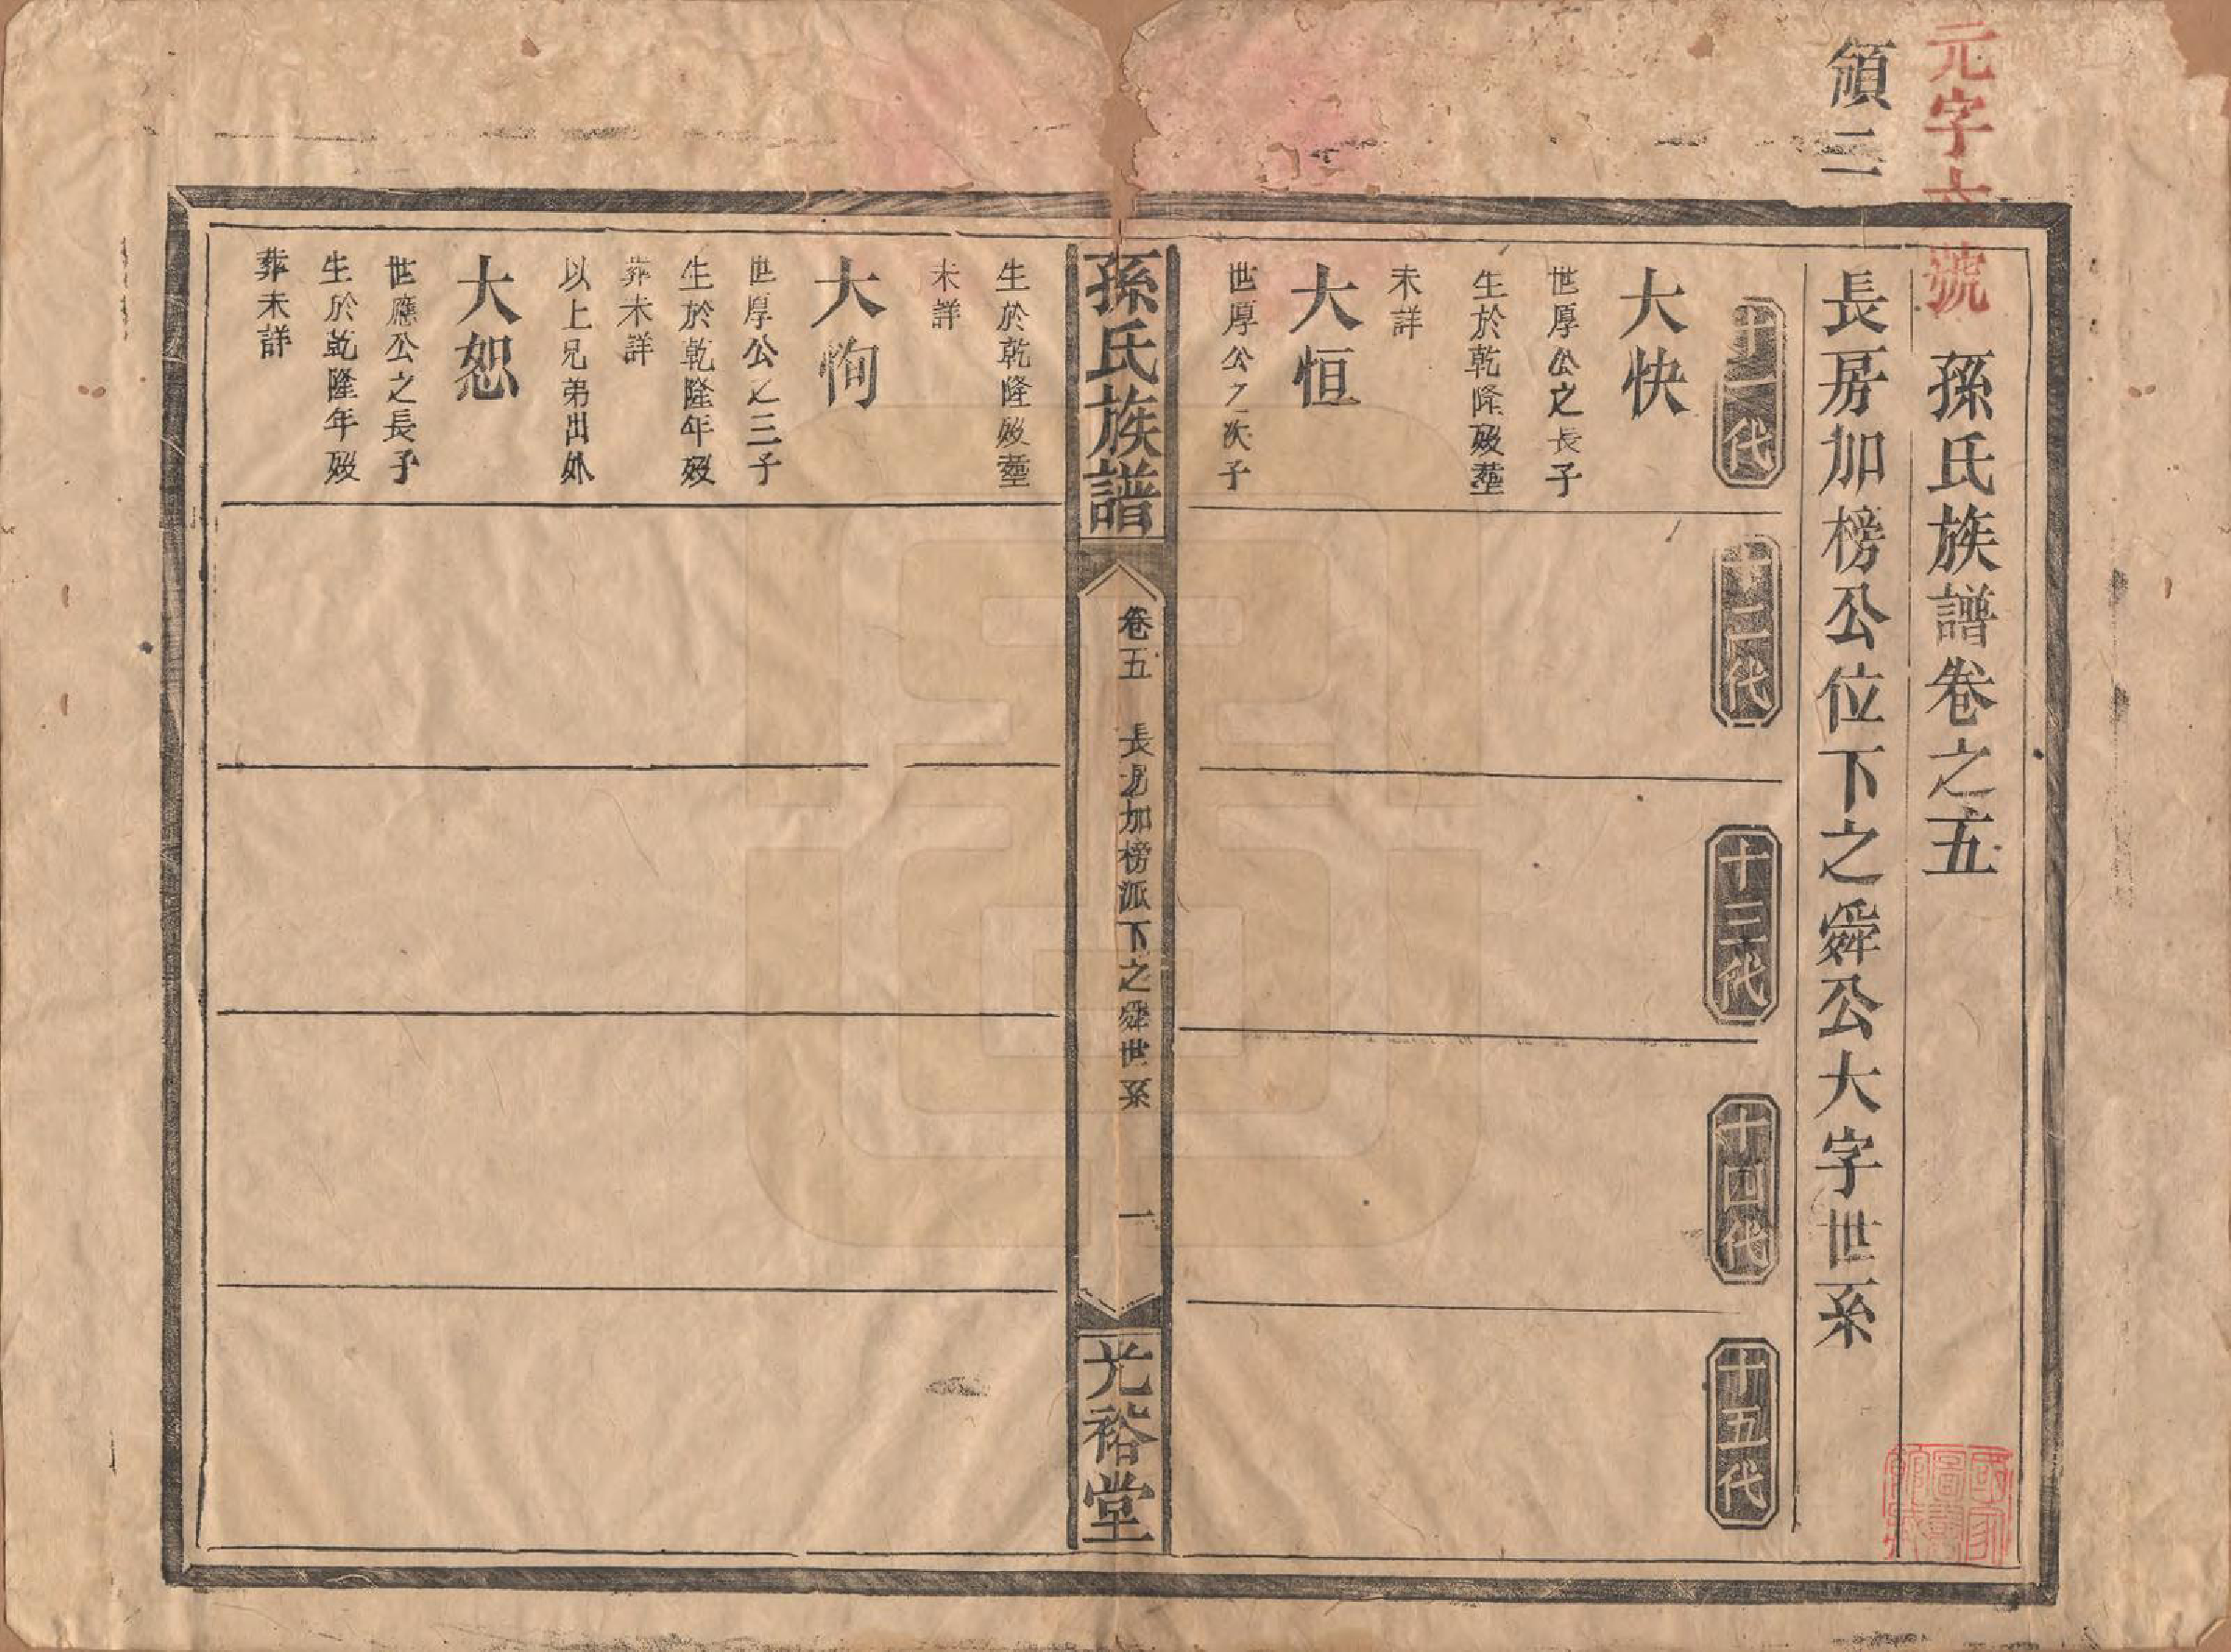 元字六號
領三
孫氏族譜卷之五
長房加榜公位下之舜公大字世系
十一代
十二代
十三代
十四代
十五代
大快
世厚公之長子
生於乾隆殁塟
未詳
大恒
世厚公之次子
孫氏族譜
卷五
長房加榜派下之舜世系
一
光裕堂
生於乾隆殁塟
未詳
大恂
世厚公之三子
生於乾隆年殁
葬未詳
以上兄弟出外
大恕
世應公之長子
生於乾隆年殁
葬未詳